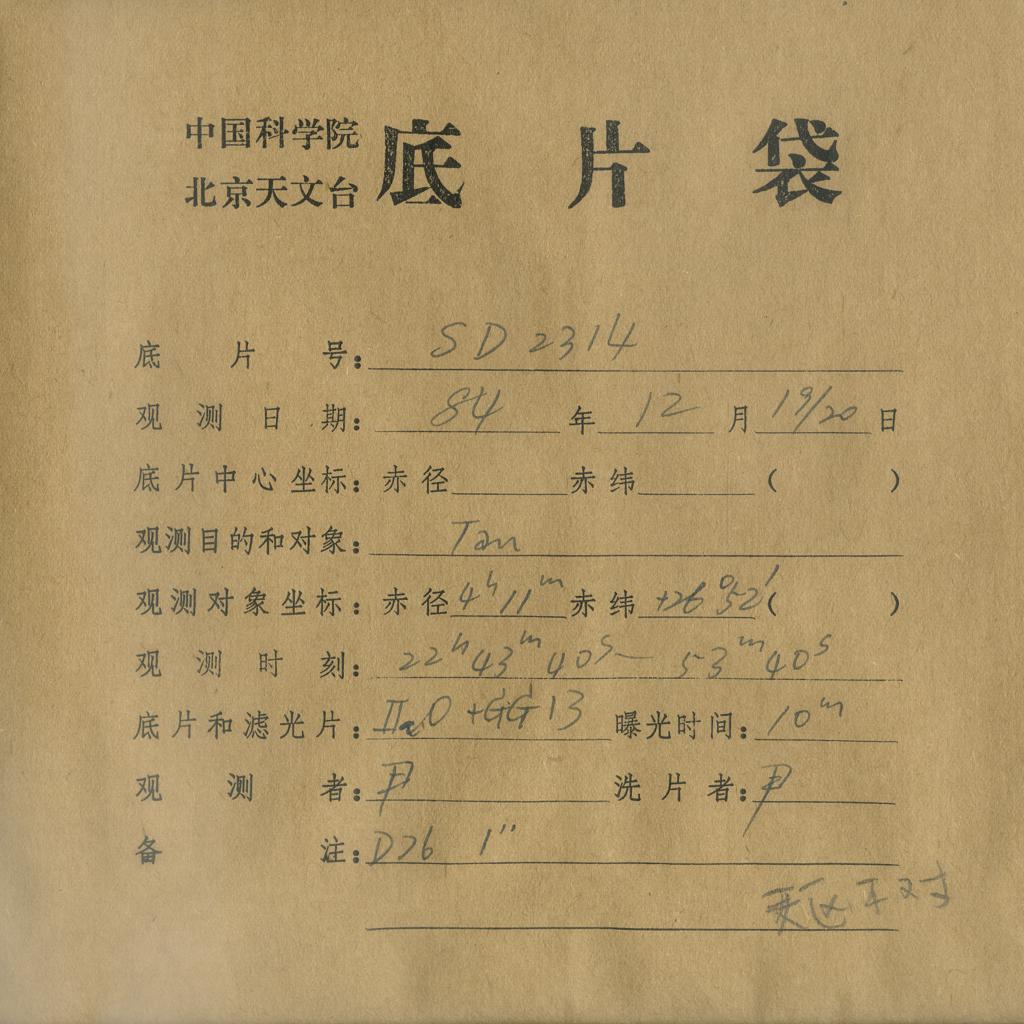 中国科学院
北京天文台 底片袋
底片号: SD 2314
观测日期: 84 年 12 月 19/20 日
底片中心坐标: 赤径 赤纬 ( )
观测目的和对象: Tau
观测对象坐标: 赤径 4h 11m 赤纬 +26°52′ ( )
观测时刻: 22h 43m 40s — 53m 40s
底片和滤光片: IIaO + GG13 曝光时间: 10m
观测者: 尹 洗片者: 尹
备注: D76 1″
天区不对